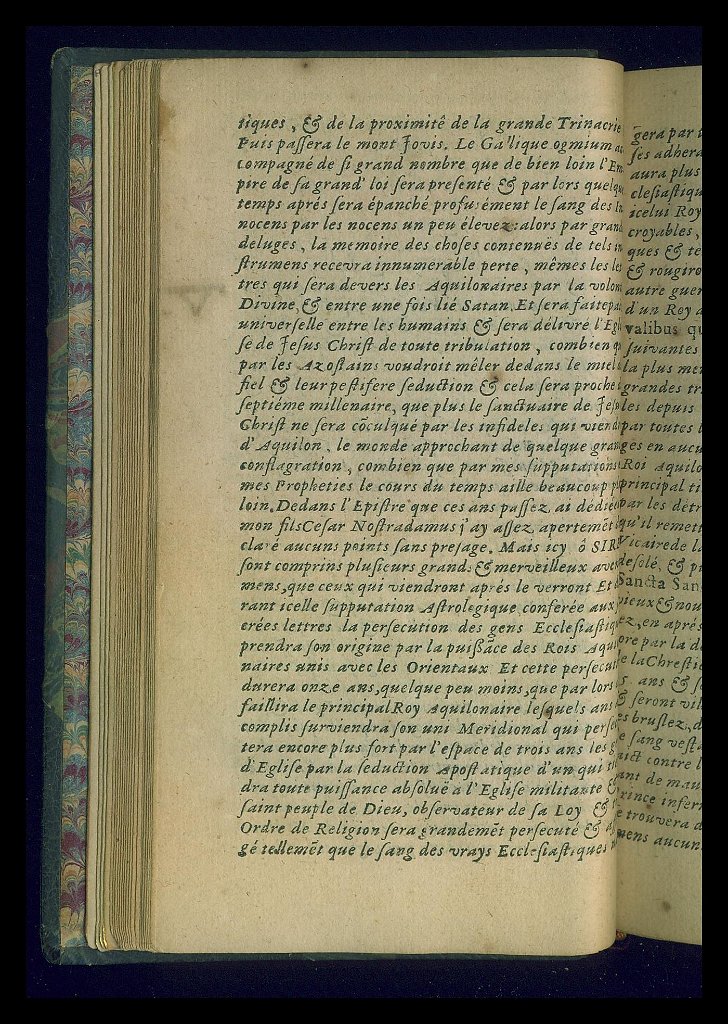 tiques, & de la proximitê de la grande Trinacrie
Puis paſſera le mont Jovis. Le Gallique ogmium
compagné de ſi grand nombre que de bien loin l'Em
pire de ſa grand' loi ſera preſenté & par lors quelque
temps aprés ſera épanché profuſément le ſang des In
nocens par les nocens un peu élevez: alors par grand
deluges, la memoire des choſes contenuës de tels in
ſtrumens recevra innumerable perte, mêmes les let
tres qui ſera devers les Aquilonaires par la volon
Divine, & entre une fois lié Satan. Et ſera faite pa
univerſelle entre les humains & ſera délivré l'Egli
ſe de Jeſus Chriſt de toute tribulation, combien q
par les Azoſtains voudroit mêler dedans le miel
fiel & leur peſtifere ſeduction & cela ſera proche
ſeptiéme millenaire, que plus le ſanctuaire de Jeſu
Chriſt ne ſera cõculqué par les infideles qui viend
d'Aquilon, le monde approchant de quelque gran
conflagration, combien que par mes ſupputations
mes Propheties le cours du temps aille beaucoup p
loin. Dedans l'Epiſtre que ces ans paſſez ai dédié
mon fils Ceſar Noſtradamus j'ay aſſez apertemẽt
claré aucuns points ſans preſage. Mais icy ô SIR
ſont comprins pluſieurs grands & merveilleux aven
mens, que ceux qui viendront aprés le verront Et
rant icelle ſupputation Aſtrologique conferée aux
crées lettres la perſecution des gens Eccleſiaſtiq
prendra ſon origine par la puiſſãce des Rois Aqui
naires unis avec les Orientaux Et cette perſecut
durera onze ans, quelque peu moins, que par lors
faillira le principal Roy Aquilonaire leſquels ans
complis ſurviendra ſon uni Meridional qui perſe
tera encore plus fort par l'eſpace de trois ans les g
d'Egliſe par la ſeduction Apoſtatique d'un qui ti
dra toute puiſſance abſoluë a l'Egliſe militante &
ſaint peuple de Dieu, obſervateur de ſa Loy & t
Ordre de Religion ſera grandemẽt perſecuté & a
gé tellemẽt que le ſang des vrays Eccleſiaſtiques
gera par
ſes adhera
aura plus
cleſiaſtiqu
icelui Roy
croyables,
ques & te
& rougiro
autre guer
d'un Roy
valibus qu
ſuivantes
la plus me
grandes tr
les depuis
par toutes
ges en aucu
Roi Aquilo
principal ti
par les détr
qu'il remett
Vicaire de la
deſolé, & p
Sancta San
vieux & nou
ez, en aprés
ore par la d
e la Chreſtie
s ans & ſ
& ſeront vil
es bruſlez, d
e ſang veſta
uict contre l
ant de mau
rince infern
e trouvera d
mens aucun